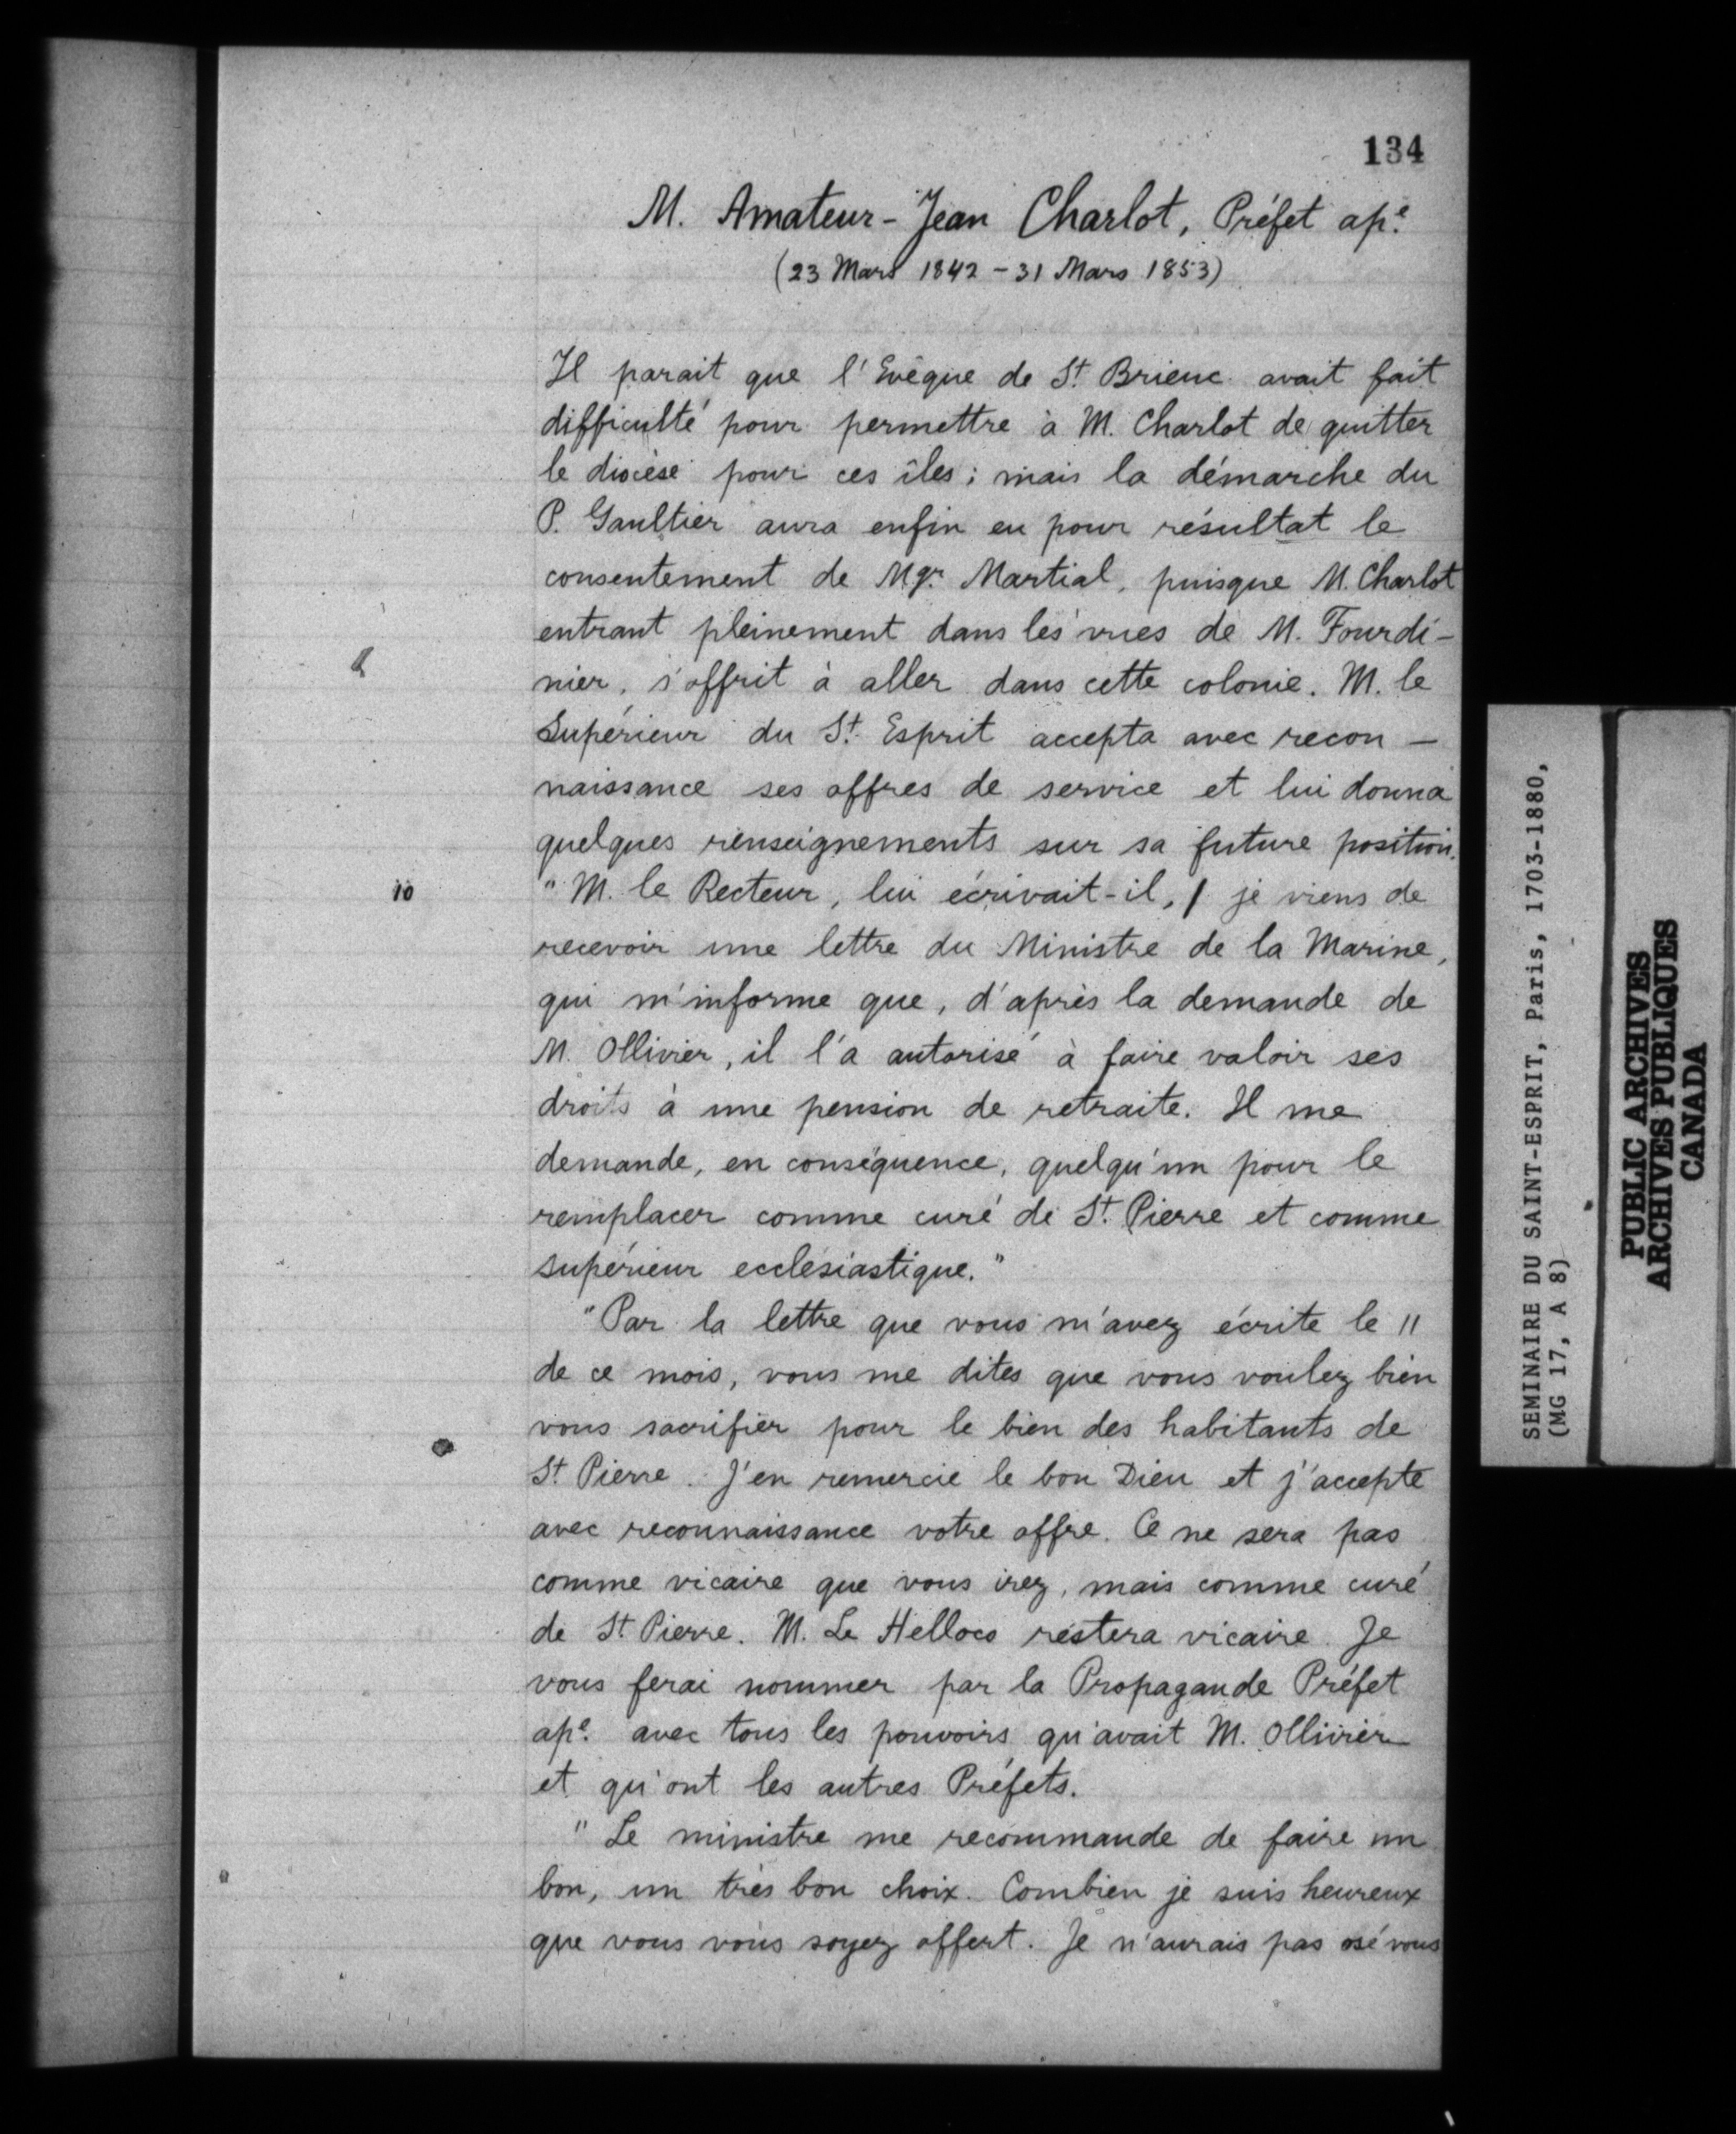 134
M. Amateur-Jean Charlot, Préfet ap.e
(23 Mars 1842 - 31 Mars 1853)
Il parait que l'Evêque de St. Brieuc avait fait
difficulté pour permettre à M. Charlot de quitter
le diocèse pour ces îles ; mais la démarche du
P. Gaultier aura enfin eu pour résultat le
consentement de Mgr. Martial, puisque M. Charlot
entrant pleinement dans les vues de M. Fourdi-
nier, s'offrit à aller dans cette colonie. M. le
Supérieur du St. Esprit accepta avec recon-
naissance ses offres de service et lui donna
quelques renseignements sur sa future position.
10 "M. le Recteur, lui écrivait-il, / je viens de
recevoir une lettre du Ministre de la Marine,
qui m'informe que, d'après la demande de
M. Ollivier, il l'a autorisé à faire valoir ses
droits à une pension de retraite. Il me
demande, en conséquence, quelqu'un pour le
remplacer comme curé de St. Pierre et comme
supérieur ecclésiastique."
"Par la lettre que vous m'avez écrite le 11
de ce mois, vous me dites que vous voulez bien
vous sacrifier pour le bien des habitants de
St. Pierre. J'en remercie le bon Dieu et j'accepte
avec reconnaissance votre offre. Ce ne sera pas
comme vicaire que vous irez, mais comme curé
de St. Pierre. M. Le Helloco restera vicaire. Je
vous ferai nommer par la Propagande Préfet
ap.e avec tous les pouvoirs qu'avait M. Ollivier
et qu'ont les autres Préfets.
"Le ministre me recommande de faire un
bon, un très bon choix. Combien je suis heureux
que vous vous soyez offert. Je n'aurais pas osé vous
SEMINAIRE DU SAINT-ESPRIT, Paris, 1703-1880,
(MG 17, A 8)
PUBLIC ARCHIVES
ARCHIVES PUBLIQUES
CANADA